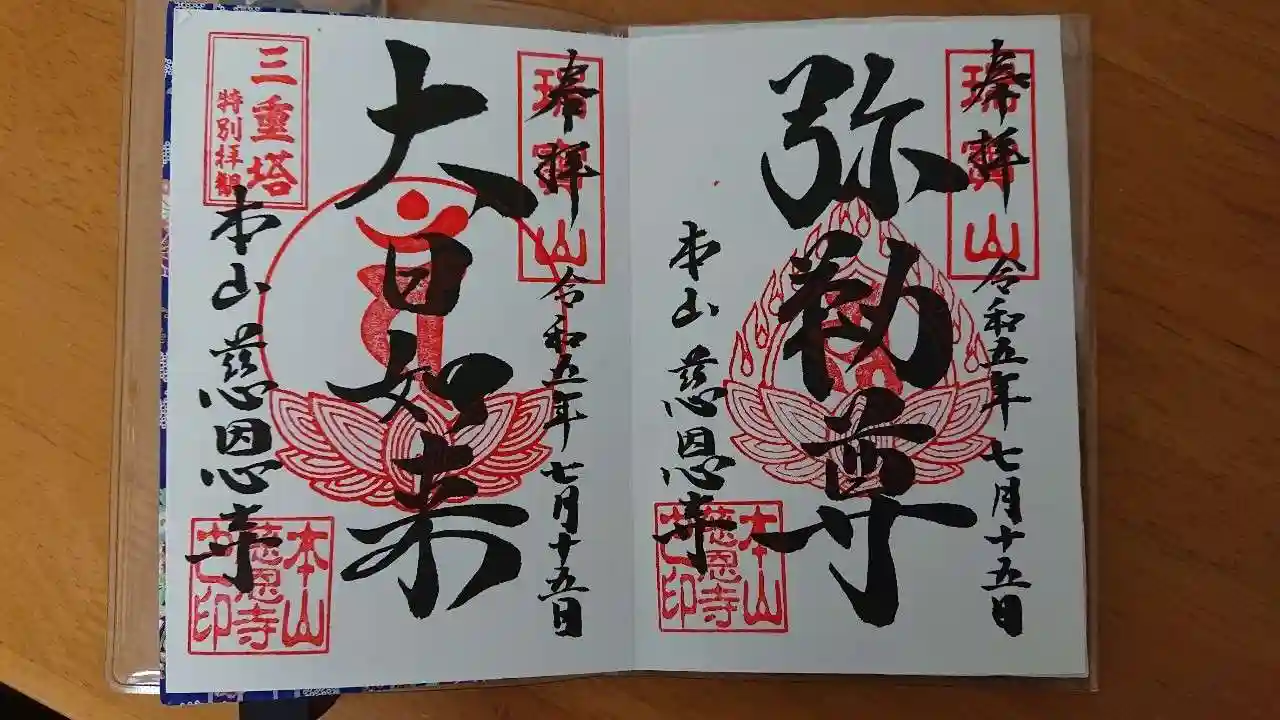 奉拝
瑞寶山
令和五年七月十五日
弥勒尊
本山 慈恩寺
本山
慈恩寺
之印
奉拝
瑞寶山
令和五年七月十五日
大日如来
三重塔
特別拝観
本山 慈恩寺
本山
慈恩寺
之印